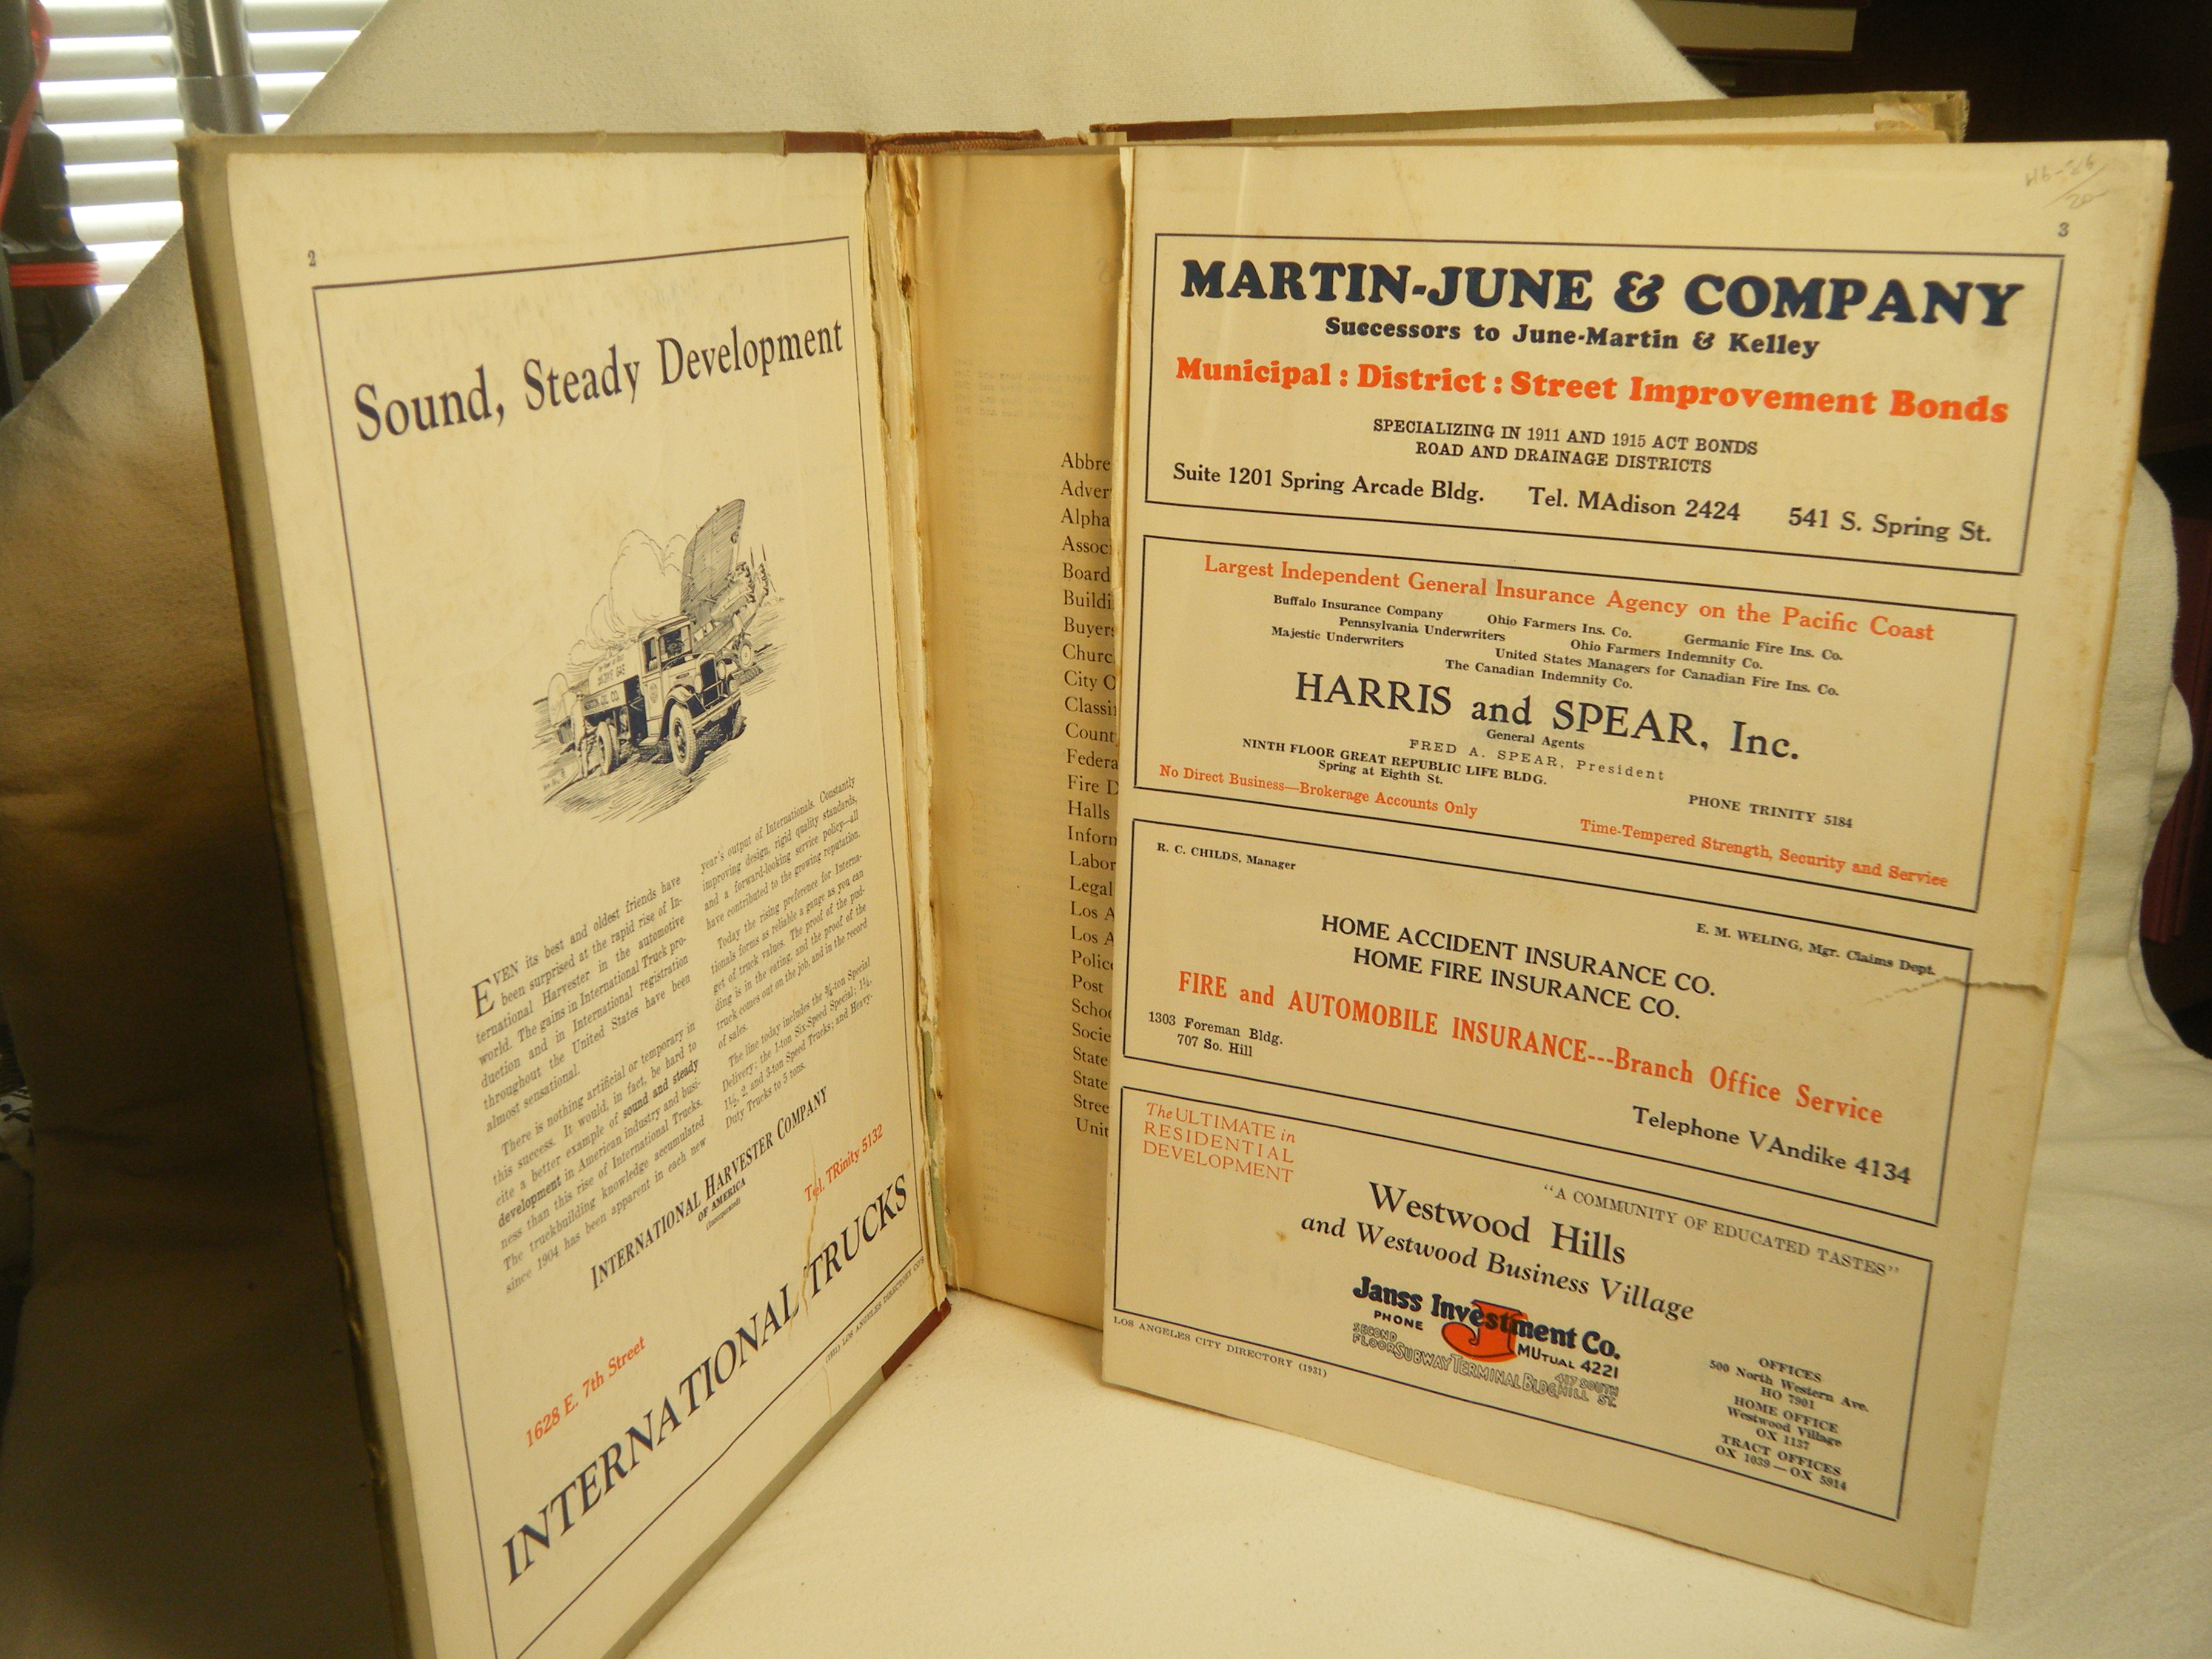 2
Sound, Steady Development
EVEN its best and oldest friends have
been surprised at the rapid rise of In-
ternational Harvester in the automotive
world. The gains in International Truck pro-
duction and in International registration
throughout the United States have been
almost sensational.
There is nothing artificial or temporary in
this success. It would, in fact, be hard to
cite a better example of sound and steady
development in American industry and busi-
ness than this rise of International Trucks.
The truckbuilding knowledge accumulated
since 1904 has been apparent in each new
year's output of Internationals. Constantly
improving design, rigid quality standards,
and a forward-looking service policy—all
have contributed to the growing reputation.
Today the rising preference for Interna-
tionals forms as reliable a gauge as you can
get of truck values. The proof of the pud-
ding is in the eating, and the proof of the
truck comes out on the job, and in the record
of sales.
The line today includes the ¾-ton Special
Delivery; the 1-ton Six-Speed Special; 1¼,
1½, 2, and 3-ton Speed Trucks; and Heavy-
Duty Trucks to 5 tons.
INTERNATIONAL HARVESTER COMPANY
OF AMERICA
(Incorporated)
1628 E. 7th Street
Tel. TRinity 5132
INTERNATIONAL TRUCKS
(1931) LOS ANGELES DIRECTORY CO'S
Abbre
Adver
Alpha
Assoc
Board
Buildi
Buyers
Churc
City O
Classi
Count
Federa
Fire D
Halls
Inform
Labor
Legal
Los A
Los A
Police
Post
Schoo
Socie
State
State
Stree
Unit
3
MARTIN-JUNE & COMPANY
Successors to June-Martin & Kelley
Municipal : District : Street Improvement Bonds
SPECIALIZING IN 1911 AND 1915 ACT BONDS
ROAD AND DRAINAGE DISTRICTS
Suite 1201 Spring Arcade Bldg. Tel. MAdison 2424 541 S. Spring St.
Largest Independent General Insurance Agency on the Pacific Coast
Buffalo Insurance Company Ohio Farmers Ins. Co. Germanic Fire Ins. Co.
Pennsylvania Underwriters Ohio Farmers Indemnity Co.
Majestic Underwriters United States Managers for Canadian Fire Ins. Co.
The Canadian Indemnity Co.
HARRIS and SPEAR, Inc.
General Agents
FRED A. SPEAR, President
NINTH FLOOR GREAT REPUBLIC LIFE BLDG.
Spring at Eighth St.
PHONE TRINITY 5184
No Direct Business—Brokerage Accounts Only
Time-Tempered Strength, Security and Service
R. C. CHILDS, Manager
E. M. WELING, Mgr. Claims Dept.
HOME ACCIDENT INSURANCE CO.
HOME FIRE INSURANCE CO.
FIRE and AUTOMOBILE INSURANCE---Branch Office Service
1303 Foreman Bldg.
707 So. Hill
Telephone VAndike 4134
The ULTIMATE in
RESIDENTIAL
DEVELOPMENT
"A COMMUNITY OF EDUCATED TASTES"
Westwood Hills
and Westwood Business Village
Janss Investment Co.
PHONE MUTUAL 4221
SECOND FLOOR SUBWAY TERMINAL BLDG. 417 SOUTH HILL ST.
OFFICES
500 North Western Ave.
HO 7901
HOME OFFICE
Westwood Village
OX 1137
TRACT OFFICES
OX 1039 — OX 5914
LOS ANGELES CITY DIRECTORY (1931)